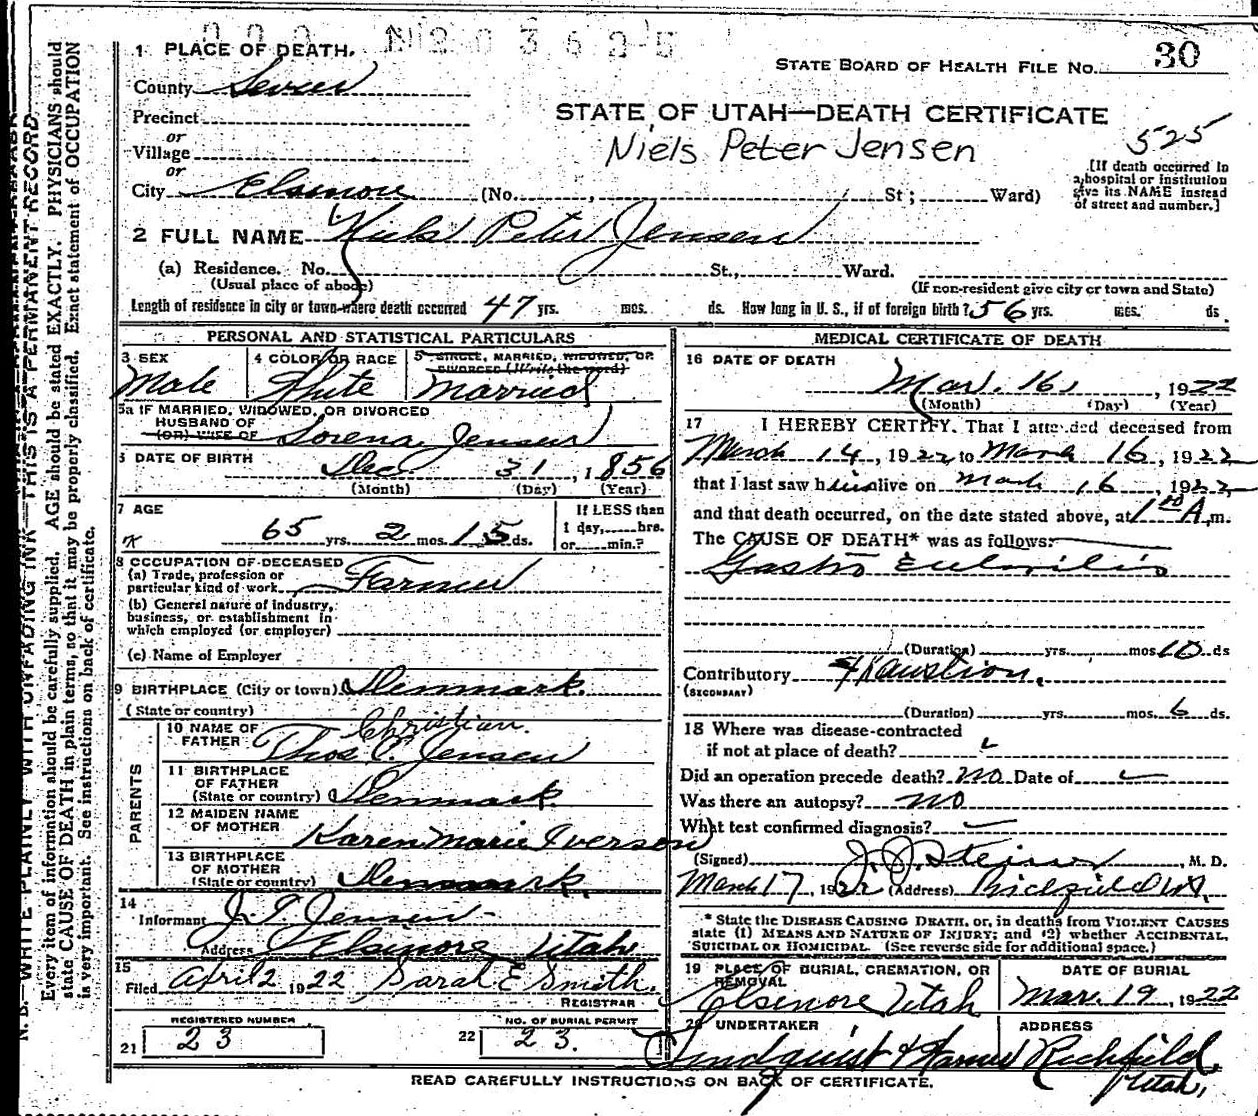 1 PLACE OF DEATH.
STATE BOARD OF HEALTH FILE NO. 30
County Sevier
STATE OF UTAH—DEATH CERTIFICATE
Precinct
Niels Peter Jensen
525
or
Village
or
[If death occurred in
a hospital or institution
give its NAME instead
of street and number.]
City Elsinore (No. , St; Ward)
2 FULL NAME Niels Peter Jensen
(a) Residence. No. St., Ward.
(Usual place of abode)
(If non-resident give city or town and State)
Length of residence in city or town where death occurred 47 yrs. mos. ds. How long in U. S., if of foreign birth? 56 yrs. mos. ds.
PERSONAL AND STATISTICAL PARTICULARS
3 SEX
Male
4 COLOR OR RACE
White
5 SINGLE, MARRIED, WIDOWED, OR
DIVORCED (Write the word)
Married
5a IF MARRIED, WIDOWED, OR DIVORCED
HUSBAND OF
(OR) WIFE OF Sorena Jensen
6 DATE OF BIRTH Dec 31, 1856
(Month) (Day) (Year)
7 AGE
65 yrs. 2 mos. 15 ds.
If LESS than
1 day, hrs.
or min.?
8 OCCUPATION OF DECEASED
(a) Trade, profession or
particular kind of work Farmer
(b) General nature of industry,
business, or establishment in
which employed (or employer)
(c) Name of Employer
9 BIRTHPLACE (City or town) Denmark.
(State or country)
PARENTS
10 NAME OF
FATHER
Christian.
Thos C. Jensen
11 BIRTHPLACE
OF FATHER
(State or country) Denmark
12 MAIDEN NAME
OF MOTHER
Karen Marie Iverson
13 BIRTHPLACE
OF MOTHER
(State or country) Denmark.
14
Informant J. T. Jensen
Address Elsinore Utah
15
Filed April 2 1922 Sarah E Smith.
REGISTRAR
REGISTERED NUMBER
21 23
NO. OF BURIAL PERMIT
22 23.
MEDICAL CERTIFICATE OF DEATH
16 DATE OF DEATH
Mar. 16, 1922
(Month) (Day) (Year)
17 I HEREBY CERTIFY, That I attended deceased from
March 14, 1922, to March 16, 1922
that I last saw him alive on March 16 1922
and that death occurred, on the date stated above, at 1 A.m.
The CAUSE OF DEATH* was as follows:
Gastro
(Duration) yrs. mos. 10 ds
Contributory
(SECONDARY)
(Duration) yrs. mos. 6 ds.
18 Where was disease contracted
if not at place of death?
Did an operation precede death? No Date of
Was there an autopsy? No
What test confirmed diagnosis?
(Signed) J. J. Steiner, M. D.
March 17, 1922 (Address) Richfield Ut.
* State the DISEASE CAUSING DEATH, or, in deaths from VIOLENT CAUSES
state (1) MEANS AND NATURE OF INJURY; and (2) whether ACCIDENTAL,
SUICIDAL OR HOMICIDAL. (See reverse side for additional space.)
19 PLACE OF BURIAL, CREMATION, OR
REMOVAL
Elsinore Utah
DATE OF BURIAL
Mar. 19, 1922
20 UNDERTAKER
ADDRESS
Lindquist & Richfield,
Utah,
READ CAREFULLY INSTRUCTIONS ON BACK OF CERTIFICATE.
N. B.—WRITE PLAINLY WITH UNFADING INK—THIS IS A PERMANENT RECORD
Every item of information should be carefully supplied. AGE should be stated EXACTLY. PHYSICIANS should
state CAUSE OF DEATH in plain terms, so that it may be properly classified. Exact statement of OCCUPATION
is very important. See instructions on back of certificate.